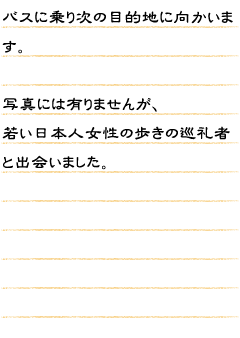 バスに乗り次の目的地に向かいま
す。
写真には有りませんが、
若い日本人女性の歩きの巡礼者
と出会いました。